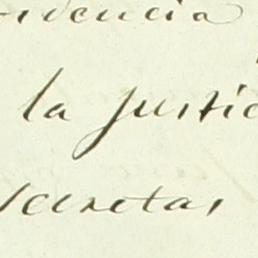 idencia
la justic
secretas,